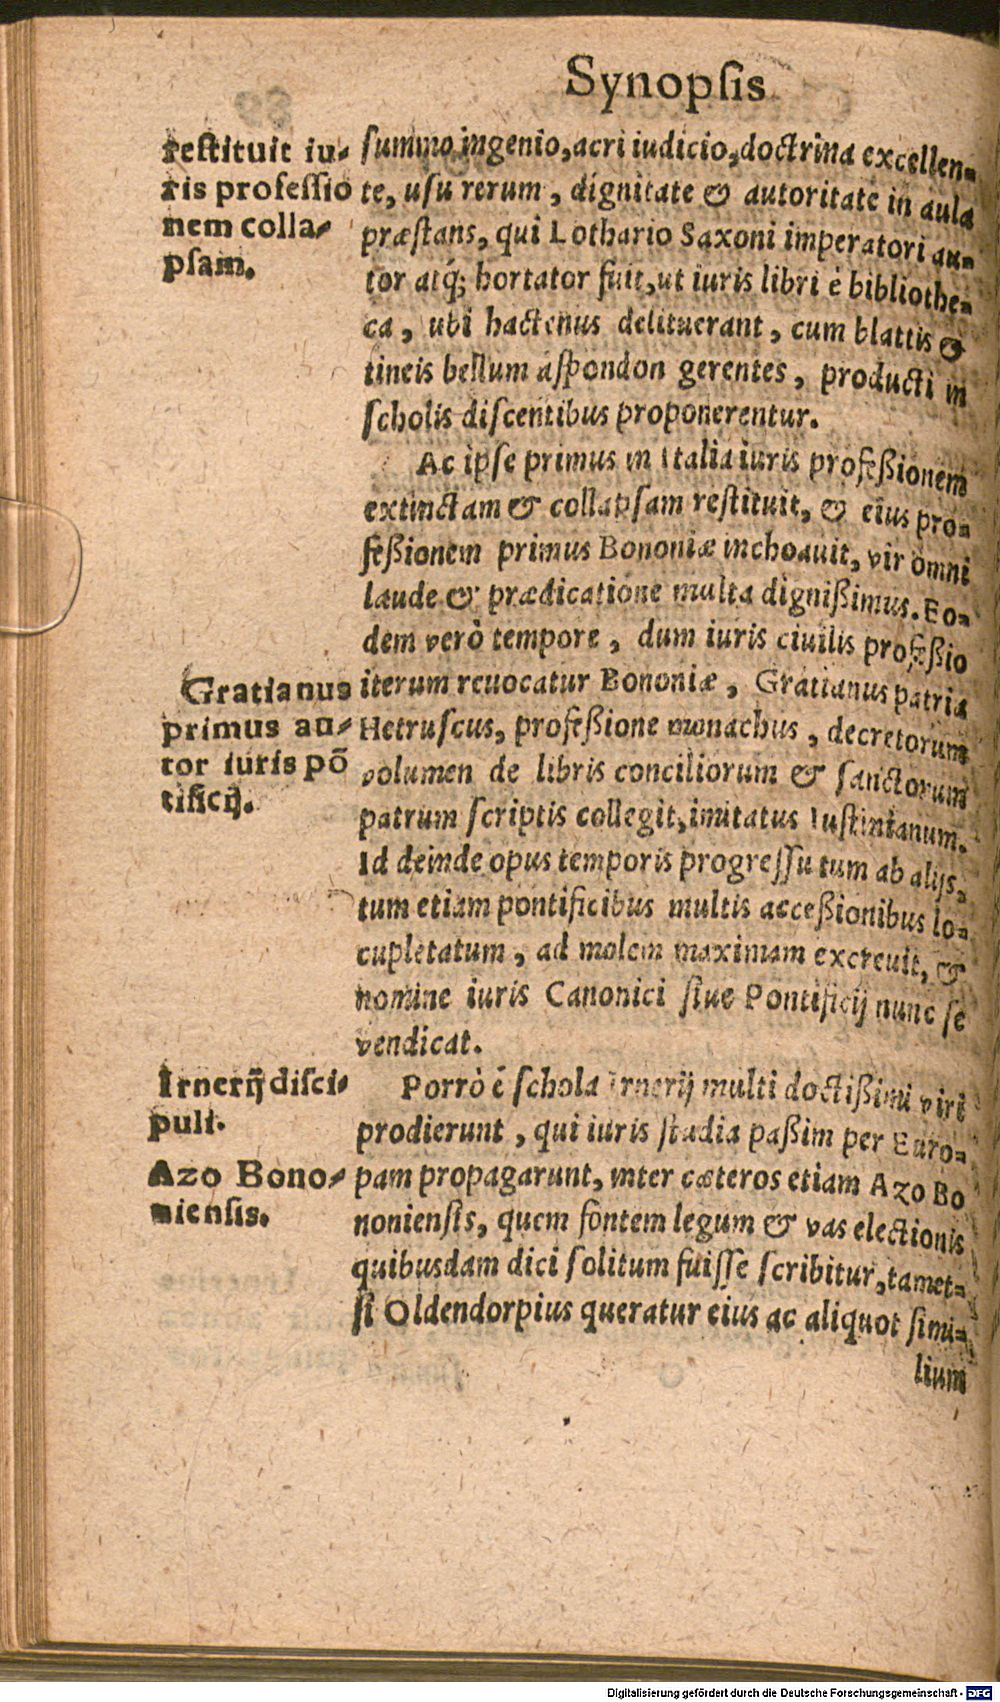 Synopſis
reſtituit iu-
ris profeſſio
nem colla-
pſam.
ſummo ingenio, acri iudicio, doctrina excellen-
te, uſu rerum, dignitate & autoritate in aula
præſtans, qui Lothario Saxoni imperatori au-
tor atq́; hortator fuit, ut iuris libri è bibliothe-
ca, ubi hactenus delituerant, cum blattis &
tineis bellum aſpondon gerentes, producti in
ſcholis diſcentibus proponerentur.
Ac ipſe primus in Italia iuris profeßionem
extinctam & collapſam reſtituit, & eius pro-
feßionem primus Bononiæ inchoauit, vir omni
laude & prædicatione multa dignißimus. Eo-
dem verò tempore, dum iuris ciuilis profeßio
Gratianus
primus au-
tor iuris põ
tificij.
iterum reuocatur Bononiæ, Gratianus patria
Hetruſcus, profeßione monachus, decretorum
volumen de libris conciliorum & ſanctorum
patrum ſcriptis collegit, imitatus Iuſtinianum.
Id deinde opus temporis progreſſu tum ab alijs,
tum etiam pontificibus multis acceßionibus lo-
cupletatum, ad molem maximam excreuit, &
nomine iuris Canonici ſiue Pontificij nunc ſe
vendicat.
Irnerij diſci-
puli.
Azo Bono-
nienſis.
Porrò è ſchola Irnerij multi doctißimi viri
prodierunt, qui iuris ſtudia paßim per Euro-
pam propagarunt, inter cæteros etiam Azo Bo
nonienſis, quem fontem legum & vas electionis
quibusdam dici ſolitum fuiſſe ſcribitur, tamet-
ſi Oldendorpius queratur eius ac aliquot ſimi-
lium
Digitalisierung gefördert durch die Deutsche Forschungsgemeinschaft - DFG